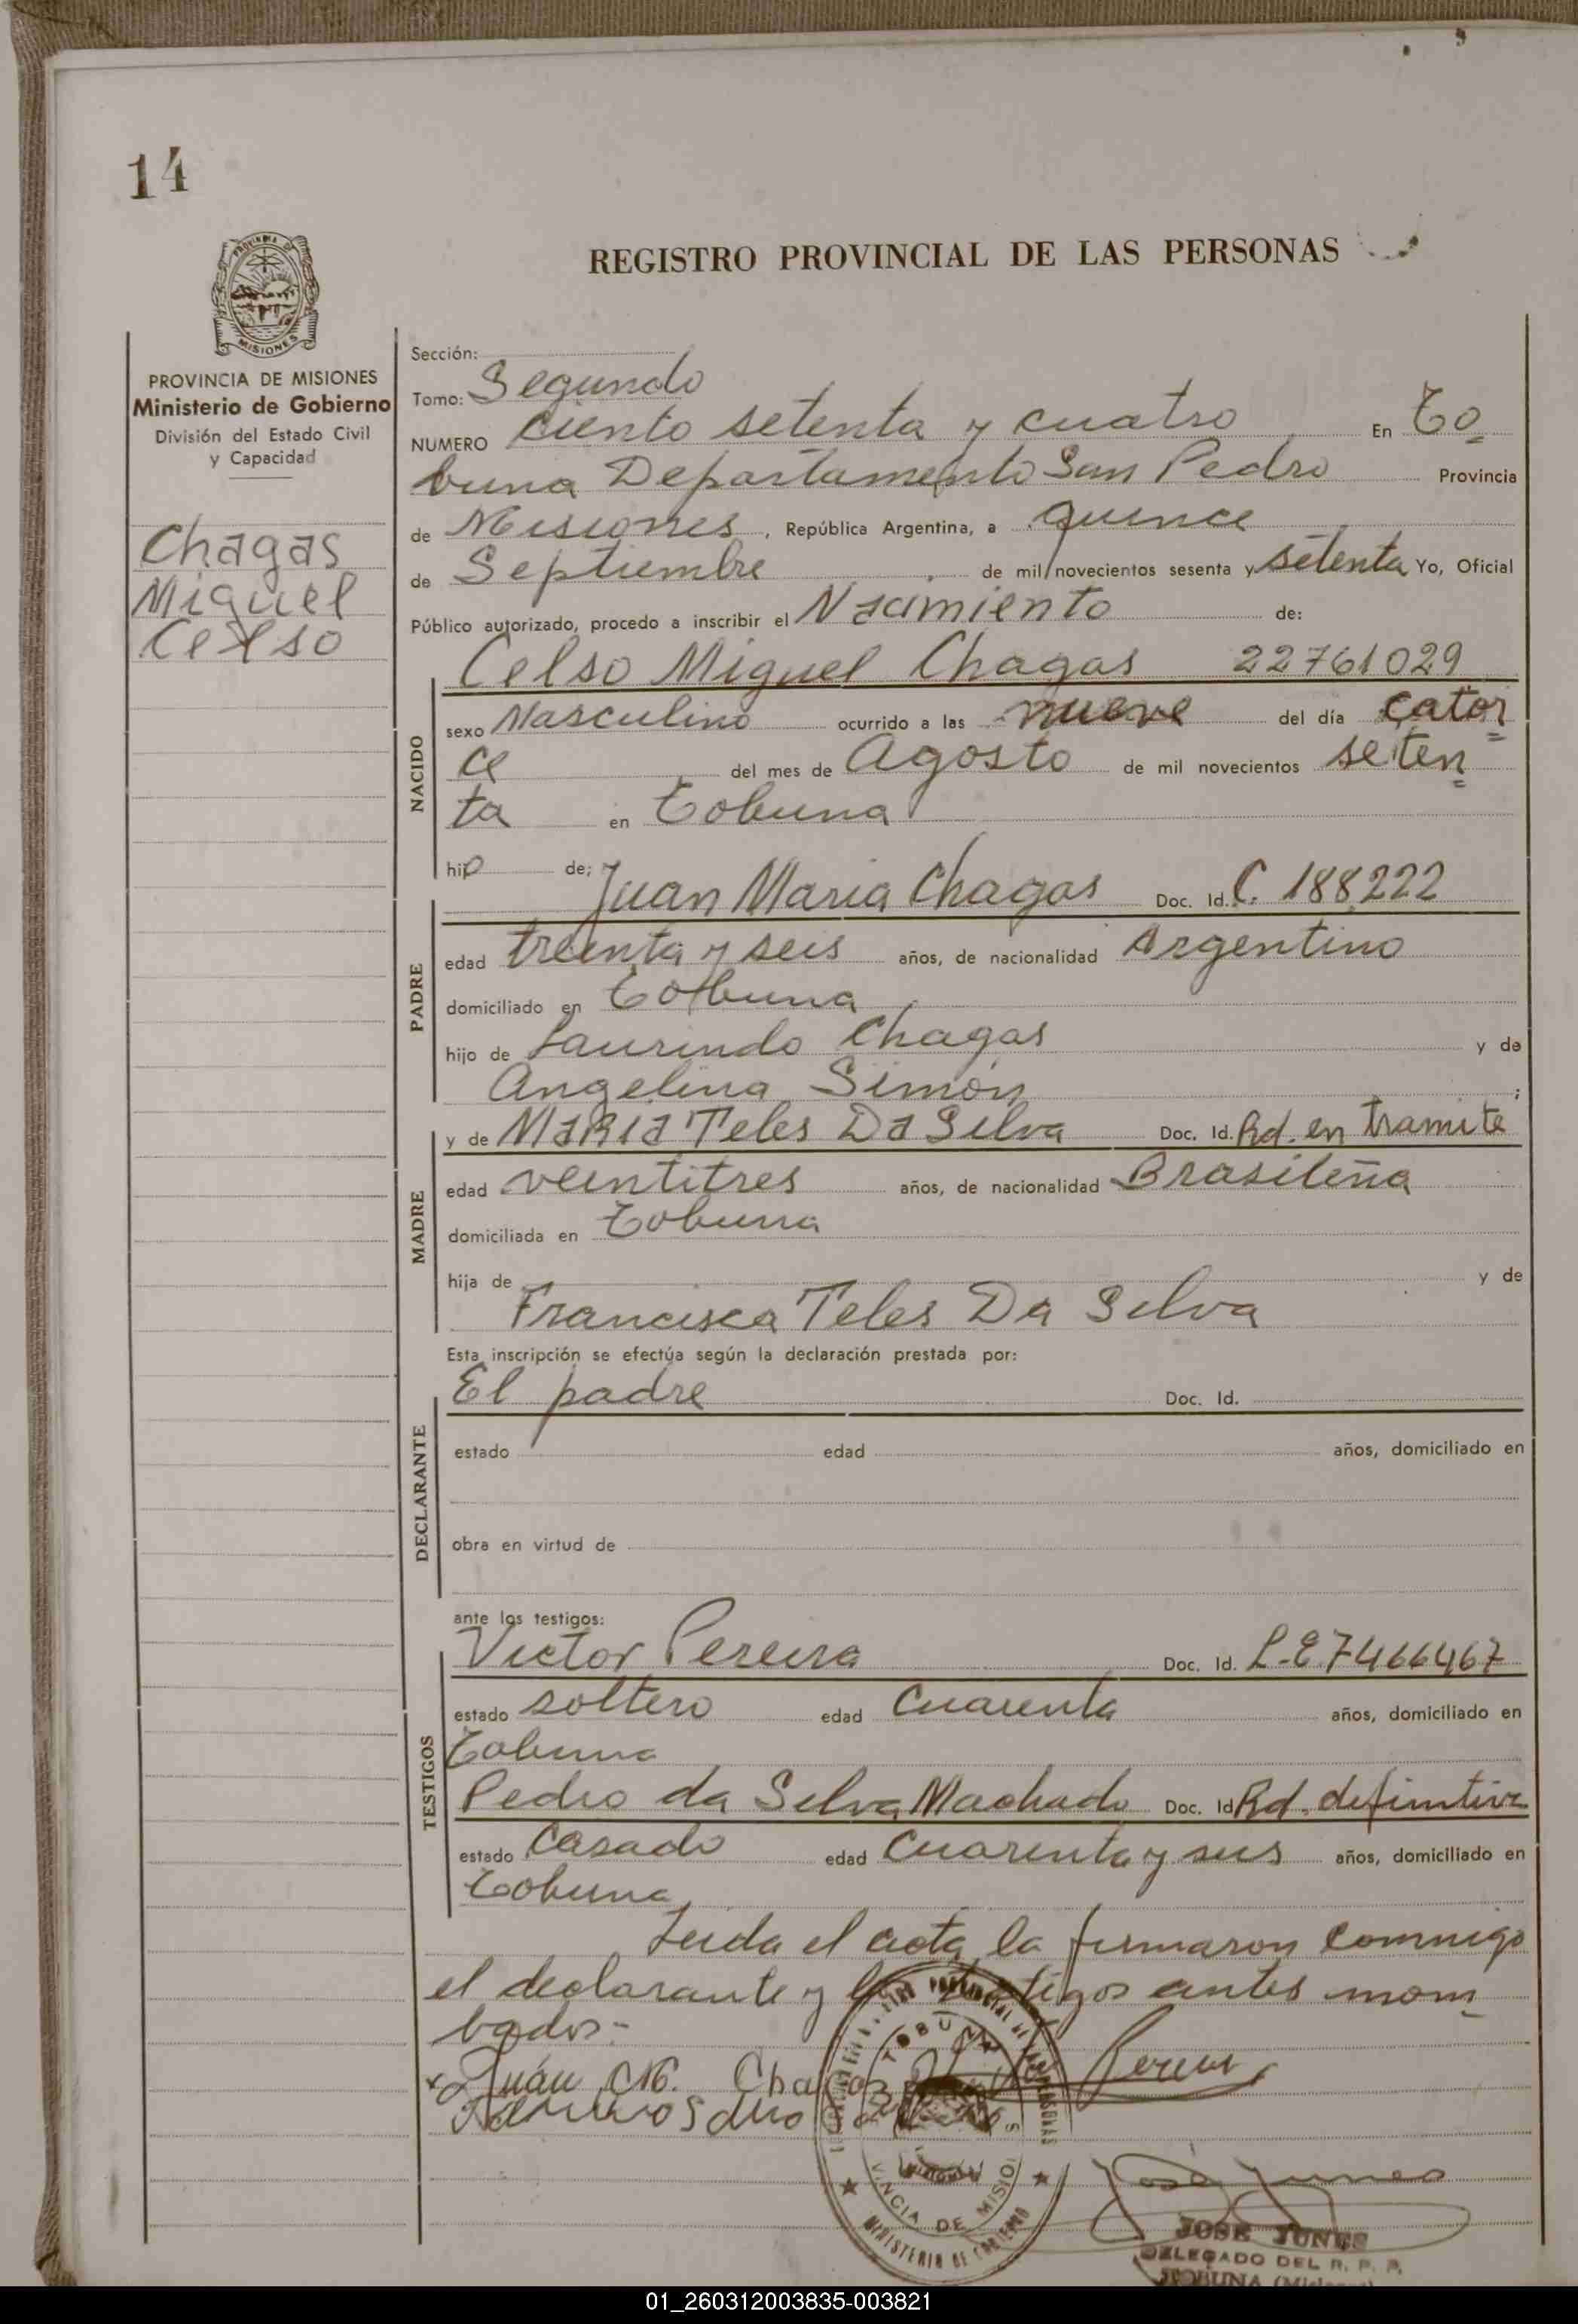 14
REGISTRO PROVINCIAL DE LAS PERSONAS
PROVINCIA DE MISIONES
Ministerio de Gobierno
División del Estado Civil
y Capacidad
Chagas
Miguel
Celso
Sección:
Tomo: Segundo
NUMERO Ciento setenta y cuatro En To
buna Departamento San Pedro Provincia
de Misiones, República Argentina, a quince
de Septiembre de mil novecientos sesenta y setenta Yo, Oficial
Público autorizado, procedo a inscribir el Nacimiento de:
Celso Miguel Chagas 22761029
NACIDO
sexo Masculino ocurrido a las nueve del día cator
ce del mes de Agosto de mil novecientos seten
ta en Tobuna
hijo de;
Juan Maria Chagas Doc. Id. C. 188.222
PADRE
edad treinta y seis años, de nacionalidad Argentino
domiciliado en Tobuna
hijo de Laurindo Chagas y de
Angelina Simón ;
y de Maria Teles Da Silva Doc. Id. Rd. en tramite
MADRE
edad veintitres años, de nacionalidad Brasileña
domiciliada en Tobuna
hija de y de
Francisca Teles Da Silva
Esta inscripción se efectúa según la declaración prestada por:
El padre Doc. Id.
DECLARANTE
estado edad años, domiciliado en
obra en virtud de
ante los testigos:
Victor Pereira Doc. Id. L-E 7466467
TESTIGOS
estado soltero edad Cuarenta años, domiciliado en
Tobuna
Pedro da Silva Machado Doc. Id Rd. definitiva
estado Casado edad Cuarenta y seis años, domiciliado en
Tobuna
Leida el acta la firmaron conmigo
el declarante y los testigos antes nom
bados:-
Juán M. Chagas
TOBUNA
MINISTERIO DE GOBIERNO
José Junes
JOSE JUNES
DELEGADO DEL R. P. P.
TOBUNA (Misiones)
01_260312003835-003821